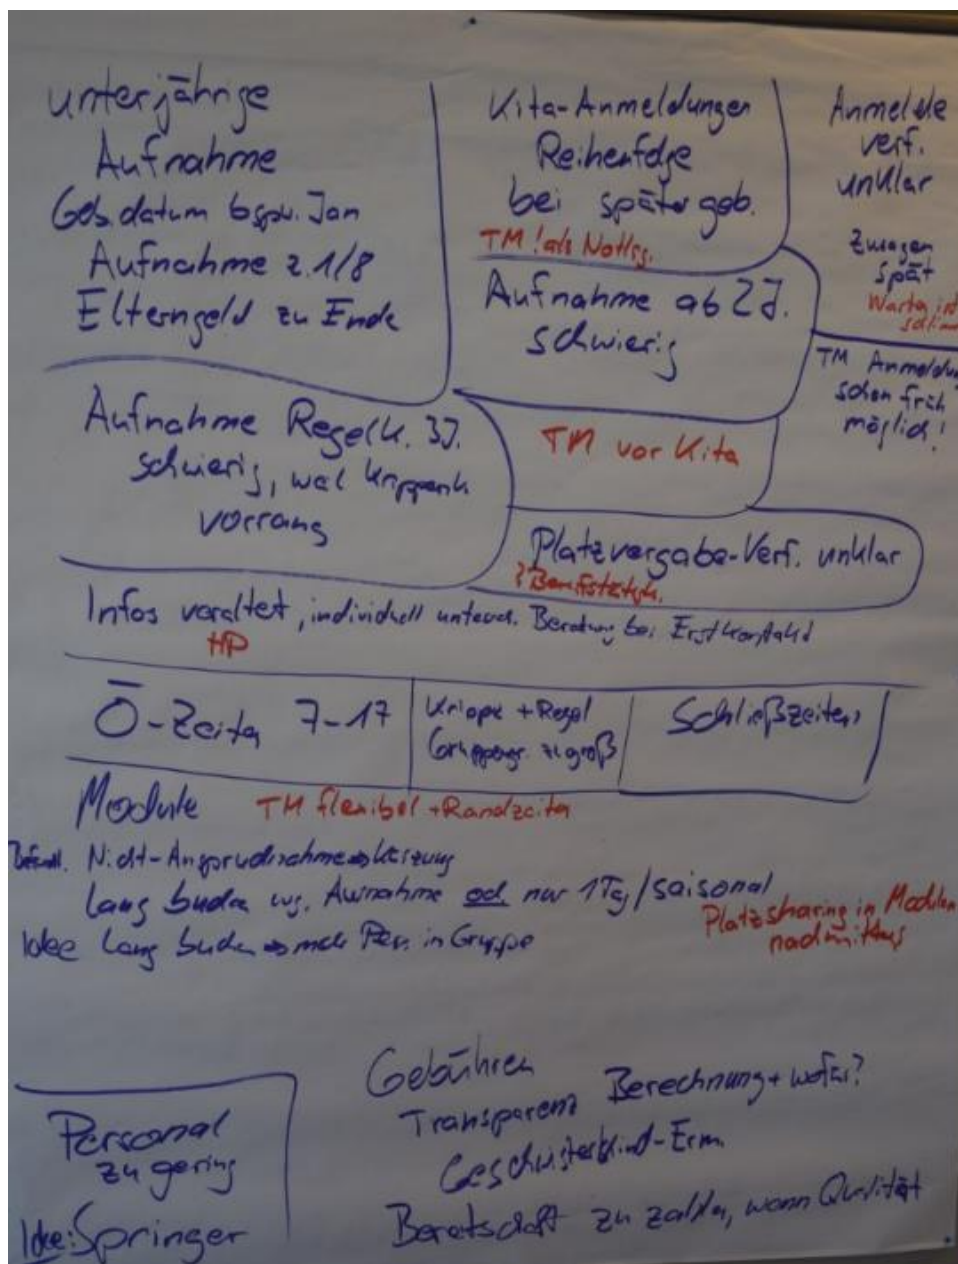 unterjährige
Aufnahme
Geb.datum bspw. Jan
Aufnahme z. 1/8
Elterngeld zu Ende
Kita-Anmeldungen
Reihenfolge
bei später geb.
TM ! als Notlsg.
Anmelde
verf.
unklar
Zusagen
spät
Warten ist
Aufnahme ab 2 J.
schwierig
TM Anmeldung
schon früh
möglich!
Aufnahme Regelk. 3J.
schwierig, weil Krippenk.
vorrang
TM vor Kita
Platzvergabe-Verf. unklar
? Berufstätigk.
Infos veraltet, individuell untersch. Beratung bei Erstkontakt
HP
Ö-Zeiten 7-17
Krippe + Regel
Gruppengr. zu groß
Schließzeiten
Module TM flexibel + Randzeiten
Nicht-Anspruchnahme Kürzung
Lang buchen wg. Ausnahme od. nur 1 Tag/saisonal
Platzsharing in Modulen
nachmittags
Idee Lang buchen mehr Per. in Gruppe
Personal
zu gering
Idee: Springer
Gebühren
Transparenz Berechnung + wofür?
Geschwisterkind-Erm.
Bereitschaft zu zahlen, wenn Qualität